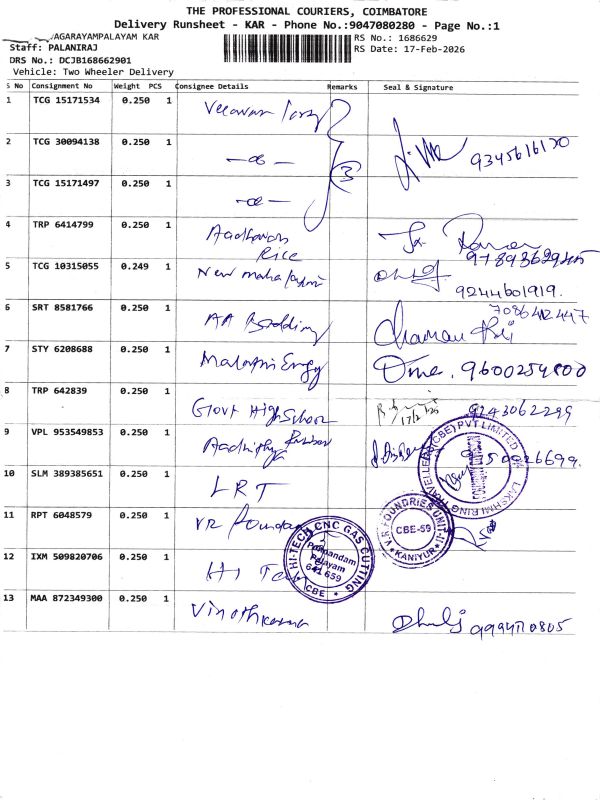 THE PROFESSIONAL COURIERS, COIMBATORE
Delivery Runsheet - KAR - Phone No.:9047080280 - Page No.:1
AGARAYAMPALAYAM KAR
RS No.: 1686629
Staff: PALANIRAJ
RS Date: 17-Feb-2026
DRS No.: DCJB168662901
Vehicle: Two Wheeler Delivery
S No Consignment No Weight PCS Consignee Details Remarks Seal & Signature
1 TCG 15171534 0.250 1
2 TCG 30094138 0.250 1 3 9345616130
3 TCG 15171497 0.250 1
4 TRP 6414799 0.250 1 Aadhavan Rice
5 TCG 10315055 0.249 1 New mahalaxmi 9244601919.
6 SRT 8581766 0.250 1 AA Bedding 7086412447
7 STY 6208688 0.250 1 Malapri Engg 9600254800
8 TRP 642839 0.250 1 Govt High School 9243062299
9 VPL 953549853 0.250 1
10 SLM 389385651 0.250 1 LRT
LAKSHMI RING TRAVELLERS (CBE) PVT LIMITED
11 RPT 6048579 0.250 1 VR Foundary
V.R FOUNDRIES UNIT-II CBE-59 KANIYUR
12 IXM 509820706 0.250 1 HI Tech
HI-TECH CNC GAS CUTTING Ponnandam Palayam 641 659 CBE
13 MAA 872349300 0.250 1 Vinothkanna 9994710805